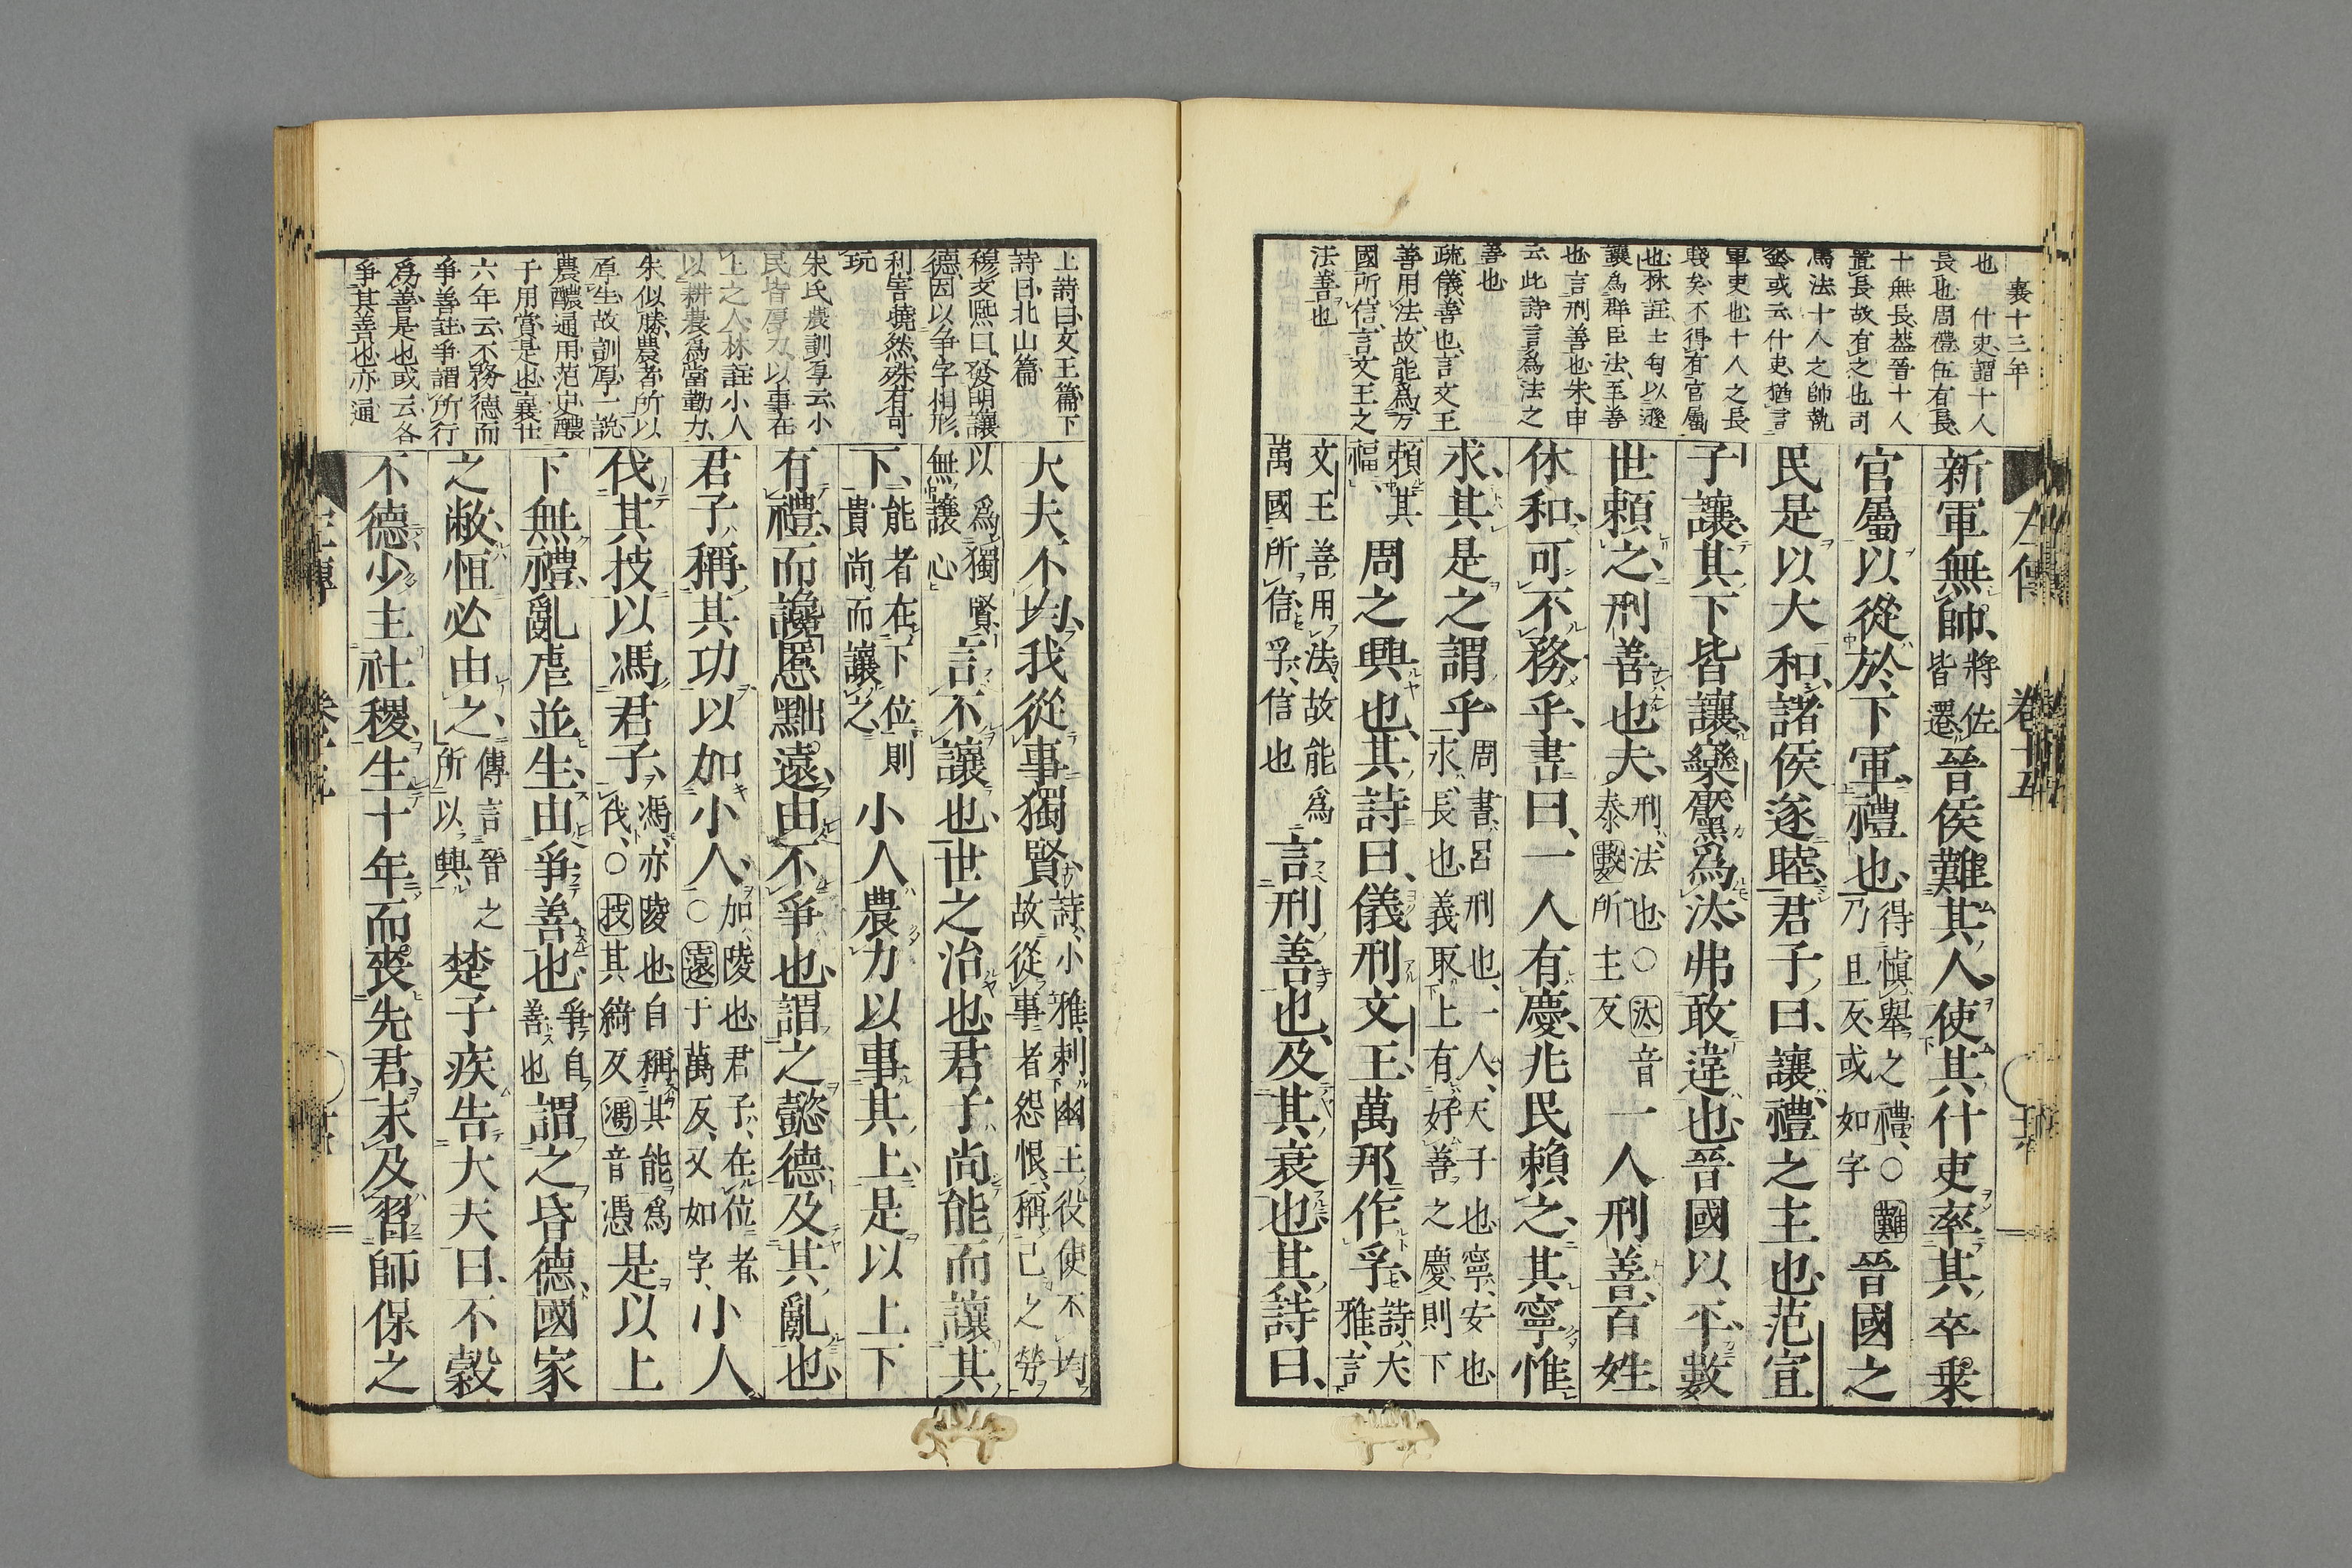 襄十三年
也 什吏謂十人
長也周禮伍有長
十無長葢晉十人
置長故有之也司
馬法十人之帥執
鈴或云什吏猶言
軍吏也十人之長
賤矣不得有官屬
也林註士匄以遜
讓爲群臣法至善
也言刑善也朱申
云此詩言爲法之
善也
疏儀善也言文王
善用法故能爲万
國所信言文王之
法善也
左傳 卷十五
新軍無帥將佐皆遷晉侯難其人使其什吏率其卒乘
官屬以從於下軍禮也得愼舉之禮○難乃旦反或如字晉國之
民是以大和諸侯遂睦君子曰讓禮之主也范宣
子讓其下皆讓欒黶爲汰弗敢違也晉國以平數
世賴之刑善也夫刑法也○汰音泰數所主反一人刑善百姓
休和可不務乎書曰一人有慶兆民賴之其寧惟
永其是之謂乎周書呂刑也一人天子也寧安也永長也義取上有好善之慶則下
賴其福周之興也其詩曰儀刑文王萬邦作孚詩大雅言
文王善用法故能爲萬國所信孚信也言刑善也及其衰也其詩曰
上詩曰文王篇下
詩曰北山篇
穆文熙曰發明讓
德因以争字相形
利害曉然殊有可
玩
朱氏農訓厚云小
民皆厚力以事在
上之人林註小人
以耕農爲當勤力
朱似勝農者所以
厚生故訓厚一說
農醲通用范史醲
于用賞是也襄廿
六年云不務德而
爭善註爭謂所行
爲善是也或云各
爭其善也亦通
大夫不均我從事獨賢詩小雅刺幽王役使不均故從事者怨恨稱己之勞
以爲獨賢無讓心言不讓也世之治也君子尚能而讓其
下能者在下位則貴尚而讓之小人農力以事其上是以上下
有禮而讒慝黜遠由不爭也謂之懿德及其亂也
君子稱其功以加小人加陵也君子在位者○遠于萬反又如字小人
伐其技以馮君子馮亦陵也自稱其能爲伐○技其綺反馮音憑是以上
下無禮亂虐並生由爭善也爭自善也謂之昏德國家
之敝恒必由之傳言晉之所以興楚子疾告大夫曰不穀
不德少主社稷生十年而喪先君未及習師保之